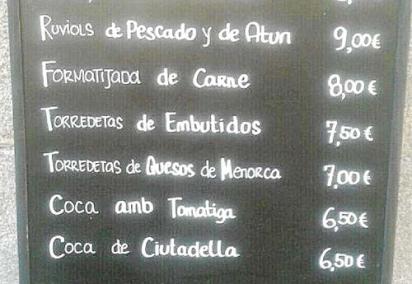 Ruviols de Pescado y de Atun 9,00€
Formatjada de Carne 8,00€
Torredetas de Embutidos 7,50€
Torredetas de Quesos de Menorca 7,00€
Coca amb Tomatiga 6,50€
Coca de Ciutadella 6,50€